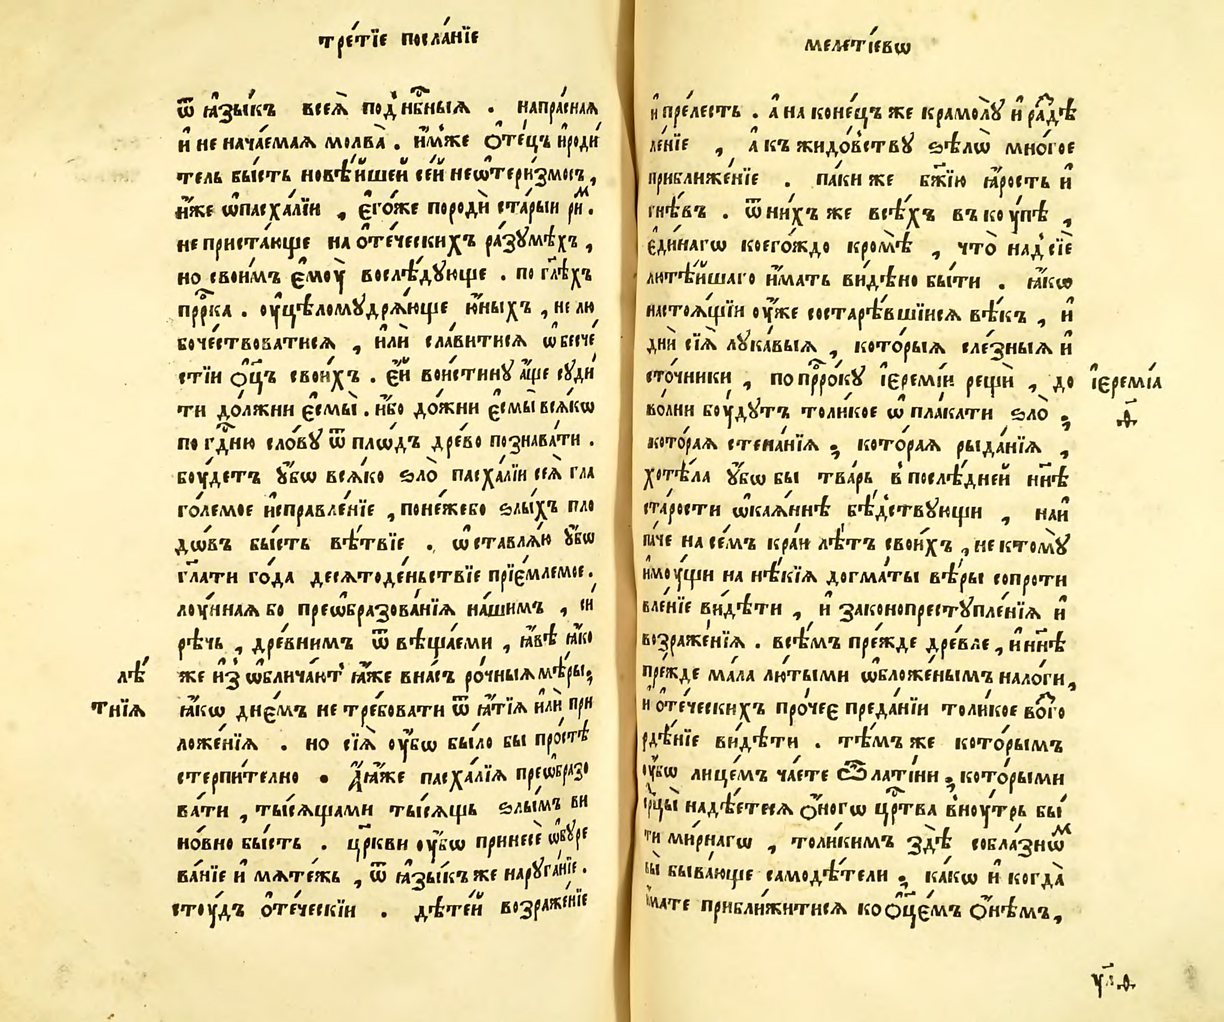 тре́тїе посла́нїе
ѿ ꙗ҆зы́къ всеѧ̀ под̾нб҃ныѧ . напра́снаѧ
и҆ не нача́емаѧ молва̀ . и҆́мже ѻ҆те́цъ и҆роди́
тель бы́сть новѣ́йшей се́й неѡтери́змосъ ,
и҆́же ѡ҆пасха́лїи , є҆го́же породѝ ста́рыи ри́м .
не приста́юще на ѻ҆те́ческихъ ра́зумѣхъ ,
но свои́мъ є҆моу̀ вослѣ́дꙋюще . по гл҃ѣхъ
прⷪ҇рка . ᲂу҆цѣломꙋдрѧ́юще ю҆́ныхъ , не лю
бочествоватисѧ , и҆лѝ сла́витисѧ ѡ҆ бесче́
стїи ѻ҆ц҃ъ свои́хъ . є҆́й вои́стинꙋ а҆́ще сꙋди́
ти до́лжни є҆смы̀ . и҆́бо до́жни є҆смы̀ всѧ́кѡ
по гдⷭ҇ню сло́вꙋ ѿ пло́дъ дре́во познава́ти .
боу́детъ ᲂу҆́бѡ всѧ́ко ѕло̀ пасха́лїи сеѧ̀ гла
го́лемое и҆справле́нїе , поне́жебо ѕлы́хъ пло
дѡ́въ бы́сть вѣ́твїе . ѡ҆ставлѧ́ю ᲂу҆́бѡ
гл҃ати го́да десѧтоде́ньствїе прїе́млемое .
лоу́ннаѧ бо преѡбразова́нїѧ на́шимъ , си́
рѣчь , дре́внимъ ѿ вѣща́еми , ꙗ҆́вѣ ꙗ҆́ко
же и҆з̾ ѡ҆блича́ют̾ ꙗ҆́же в на́съ ро́чныѧ мѣ́ры ;
лѣ́
тнїѧ
ꙗ҆́кѡ дне́мъ не тре́бовати ѿ ꙗ҆́тїѧ и҆лѝ при
ложе́нїѧ . но сїѧ̀ ᲂу҆́бѡ бы́ло бы про́стѣ
стерпи́телно . А҆ ꙗ҆́же пасха́лїѧ преѡбразо
ва́ти , ты́сѧщами ты́сѧщь ѕлы́мъ ви
но́вно бы́сть . цр҃кви ᲂу҆́бѡ принесѐ ѡ҆бꙋре
ва́нїе и҆ мѧте́жь , ѿ ꙗ҆зы́къ же нарꙋга́нїе .
стоу́дъ ѻ҆те́ческїи . дѣте́й возраже́нїе
мелетїевѡ
и҆ пре́лесть . а҆ на коне́цъ же крамо́лꙋ и҆ раⷥ҇дѣ
ле́нїе , а҆ къ жидо́вствꙋ ѕѣлѡ̀ мно́гое
приближе́нїе . па́ки же бж҃їю ꙗ҆́рость и҆
гнѣ́въ . ѿ ни́хъ же всѣ́хъ въ коу́пѣ ,
є҆ди́нагѡ коего́ждо кромѣ̀ , что̀ над̾ сїе
лютѣ́йшаго и҆́мать ви́дѣно бы́ти . ꙗ҆́кѡ
настоѧ́щїи ᲂу҆́же состарѣ́вшїисѧ вѣ́къ , и҆
дни̑ сїѧ̀ лꙋка́выѧ , кото́рыѧ сле́зныѧ и҆
сто́чники , по прⷪ҇ро́кꙋ і҆еремі́и рещѝ , до
і҆еремі́а
ѳ҃
во́лни боу́дꙋтъ толи́кое ѡ҆пла́кати ѕло̀ ;
кото́раѧ стена́нїѧ ; кото́раѧ рыда́нїѧ ,
хотѣ́ла ᲂу҆́бѡ бы тва́рь в̾ послѣ́дней нн҃ѣ
ста́рости ѡ҆каѧ́ннѣ бѣ́дствꙋющи , наи́
па́че на се́мъ краи́ лѣ́тъ свои́хъ , не ктомꙋ̀
и҆моу́щи на нѣ́кїѧ догма́ты вѣ́ры сопроти
вле́нїе ви́дѣти , и҆ законопрестꙋпле́нїѧ и҆
возраже́нїѧ . всѣ́мъ пре́жде дре́вле , и҆ нн҃ѣ
пре́жде ма́ла лю́тыми ѡ҆бложе́нымъ нало́ги ,
и҆ ѻ҆те́ческихъ про́чеє преда́нїи толи́кое воⷥ҇го
рдѣ́нїе ви́дѣти . тѣ́мъ же кото́рымъ
ᲂу҆́бѡ лице́мъ ча́ете Ѿ лати́ни ; кото́рыми
се́рцы надѣ́етесѧ ѻ҆́ногѡ црⷭ҇тва в̾ноу́трь бы́
ти ми́рнагѡ , толи́кимъ здѣ̀ собла́знѡⷨ
вы̀ быва́юще самодѣ́тели ; ка́кѡ и҆ когда̀
и҆́мате прибли́житисѧ ко ѻ҆ц҃е́мъ ѻ҆́нѣмъ ,
у҃ : ѳ҃